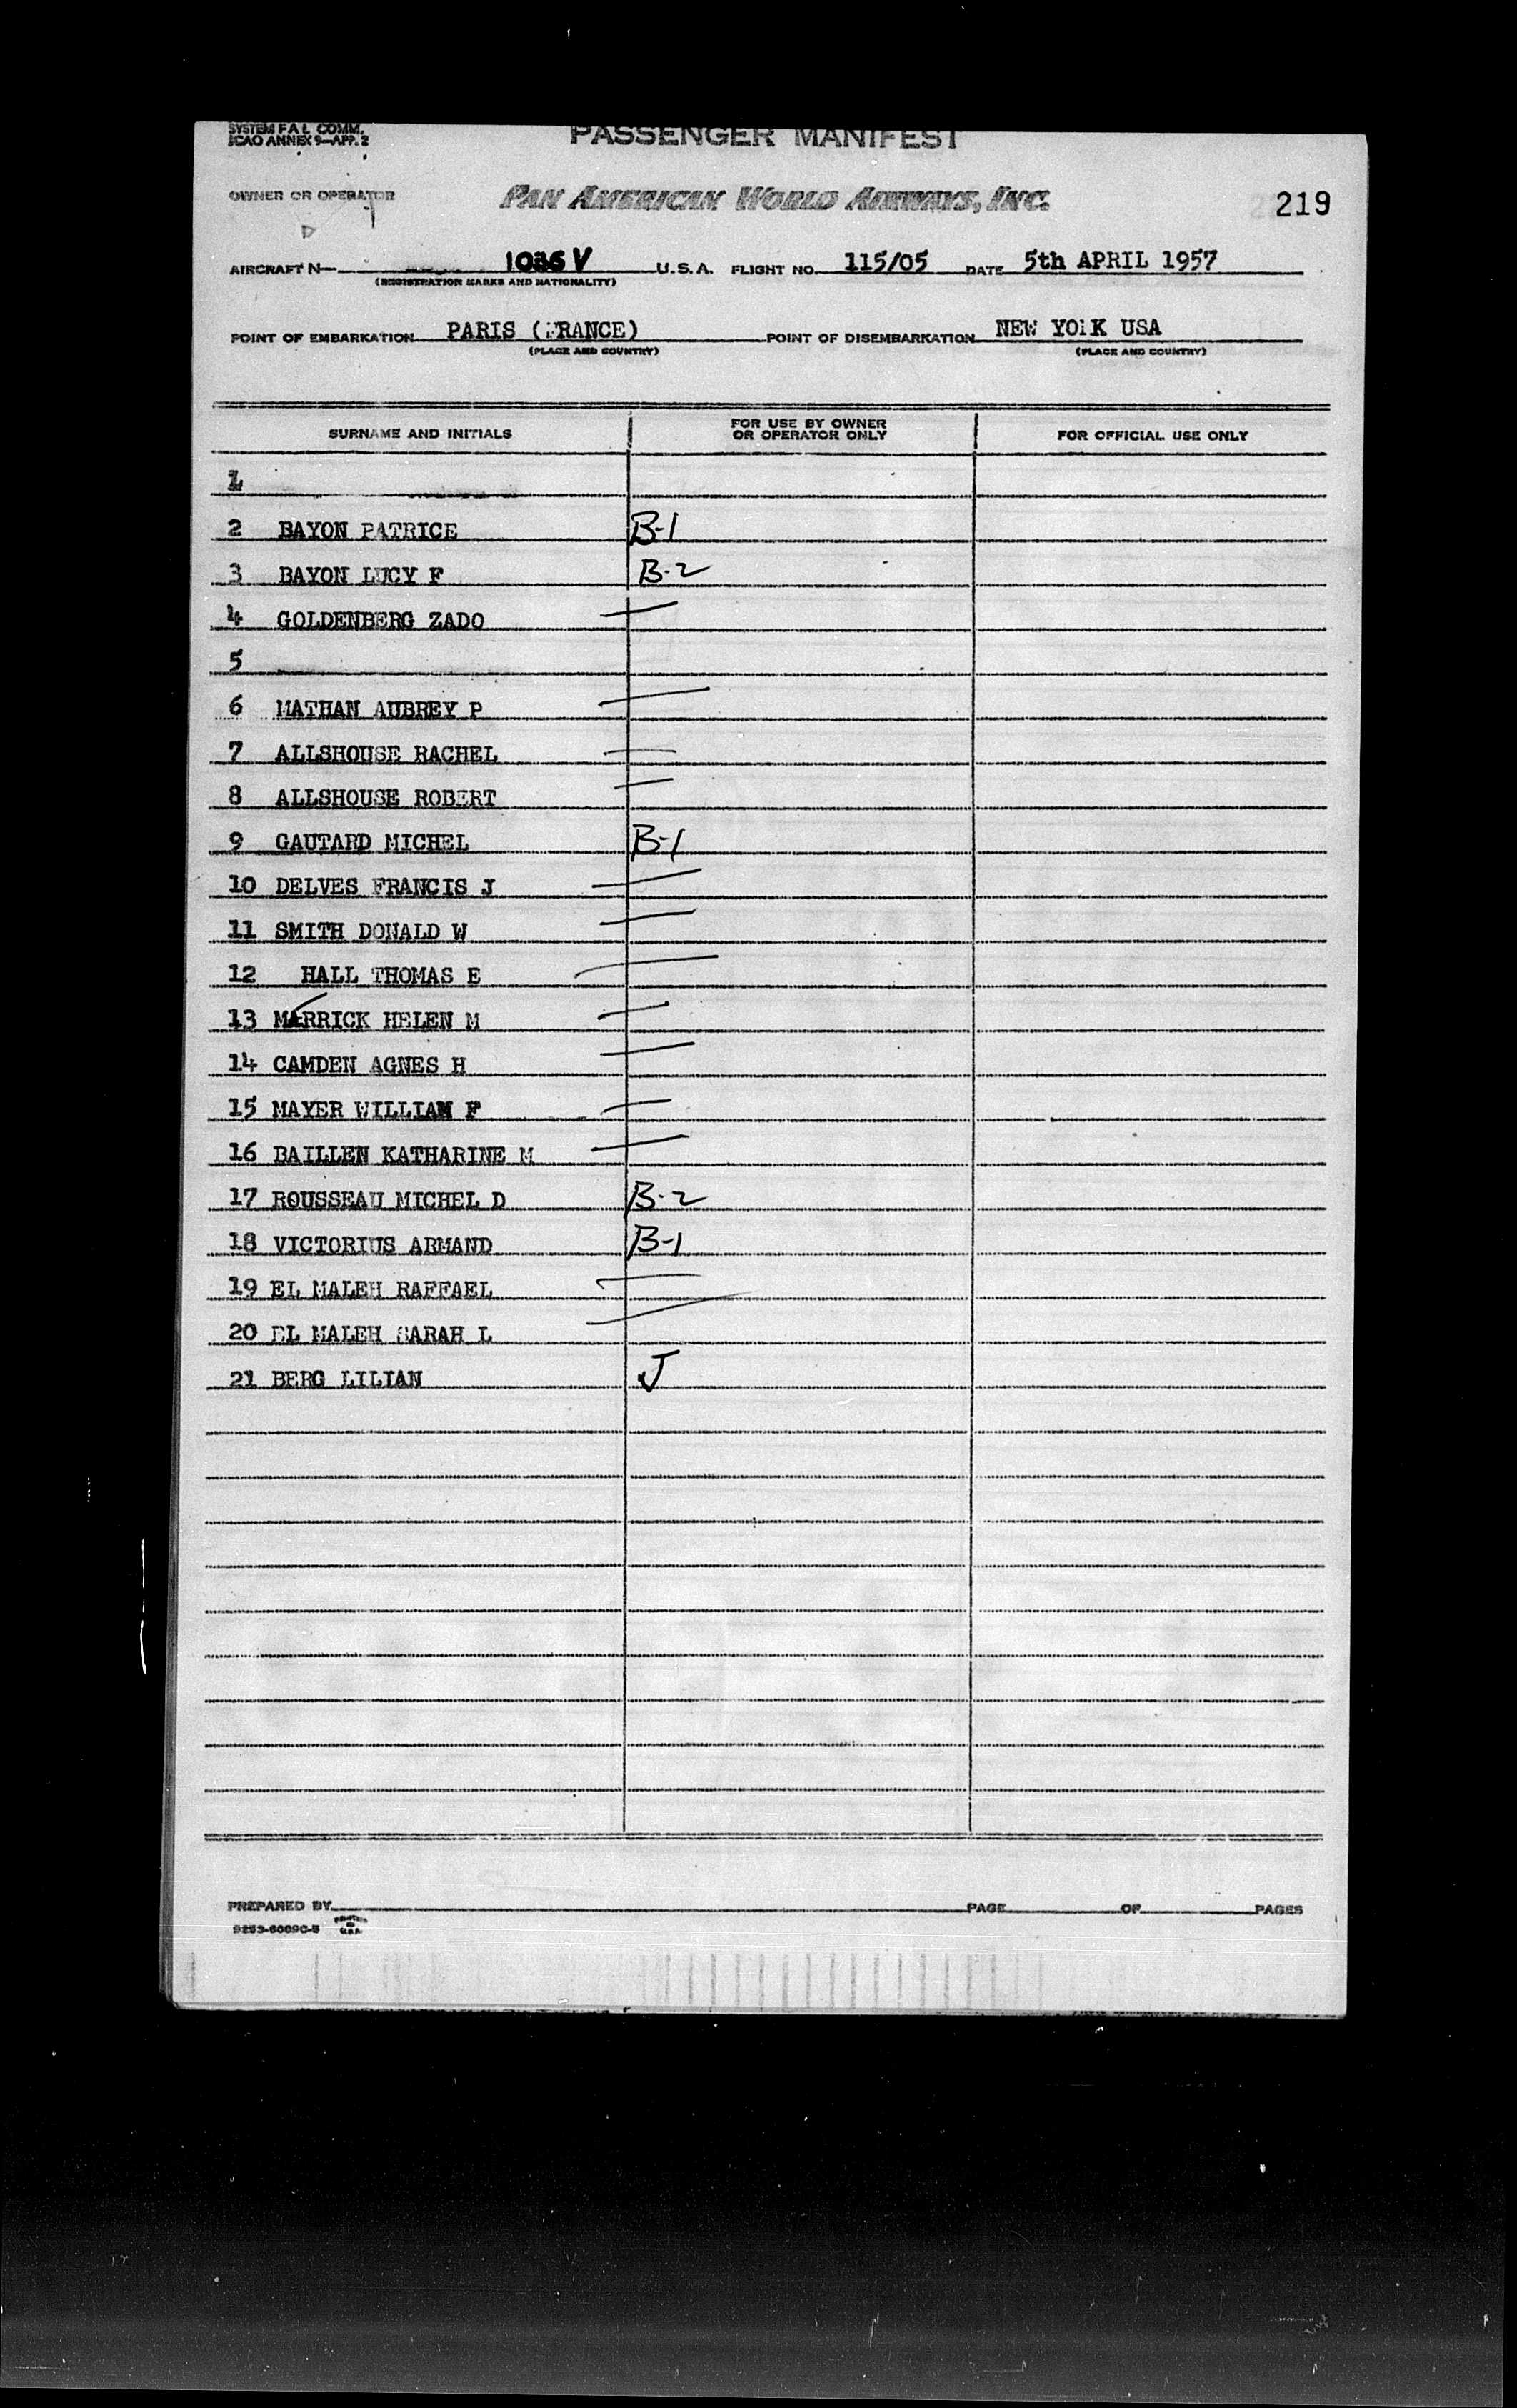 SYSTEM F A L COMM.
ICAO ANNEX 9—APP. 2
PASSENGER MANIFEST
OWNER OR OPERATOR PAN AMERICAN WORLD AIRWAYS, INC. 219
AIRCRAFT N— 1036V U.S.A. FLIGHT NO. 115/05 DATE 5th APRIL 1957
(REGISTRATION MARKS AND NATIONALITY)
POINT OF EMBARKATION PARIS (FRANCE) POINT OF DISEMBARKATION NEW YORK USA
(PLACE AND COUNTRY) (PLACE AND COUNTRY)
SURNAME AND INITIALS FOR USE BY OWNER OR OPERATOR ONLY FOR OFFICIAL USE ONLY
1
2 BAYON PATRICE B-1
3 BAYON LUCY F B-2
4 GOLDENBERG ZADO
5
6 MATHAN AUBREY P
7 ALLSHOUSE RACHEL
8 ALLSHOUSE ROBERT
9 GAUTARD MICHEL B-1
10 DELVES FRANCIS J
11 SMITH DONALD W
12 HALL THOMAS E
13 MERRICK HELEN M
14 CAMDEN AGNES H
15 MAYER WILLIAM F
16 BAILLEN KATHARINE M
17 ROUSSEAU MICHEL D B-2
18 VICTORIUS ARMAND B-1
19 EL MALEH RAFFAEL
20 EL MALEH SARAH L
21 BERG LILIAN J
PREPARED BY PAGE OF PAGES
PRINTED IN U.S.A.